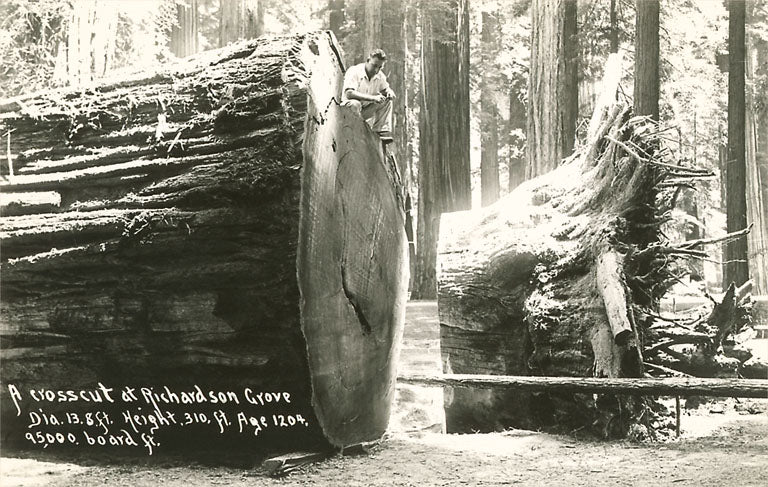 A crosscut at Richardson Grove
Dia. 13.8 ft. Height. 310, ft. Age 1204,
95,000, board ft.